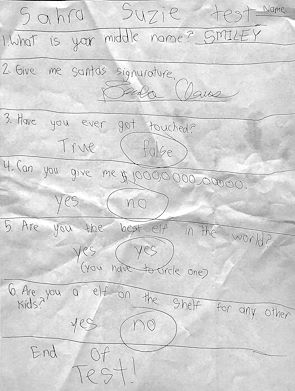 Sahra Suzie test Name
1. What is your middle name? SMILEY
2. Give me santas signurature.
Santa Claus
3. Have you ever got touched?
True false
4. Can you give me $10000000.00000.
yes no
5 Are you the best elf in the world?
yes yes
(you have to circle one)
6 Are you a elf on the shelf for any other
kids?
yes no
End of
Test!